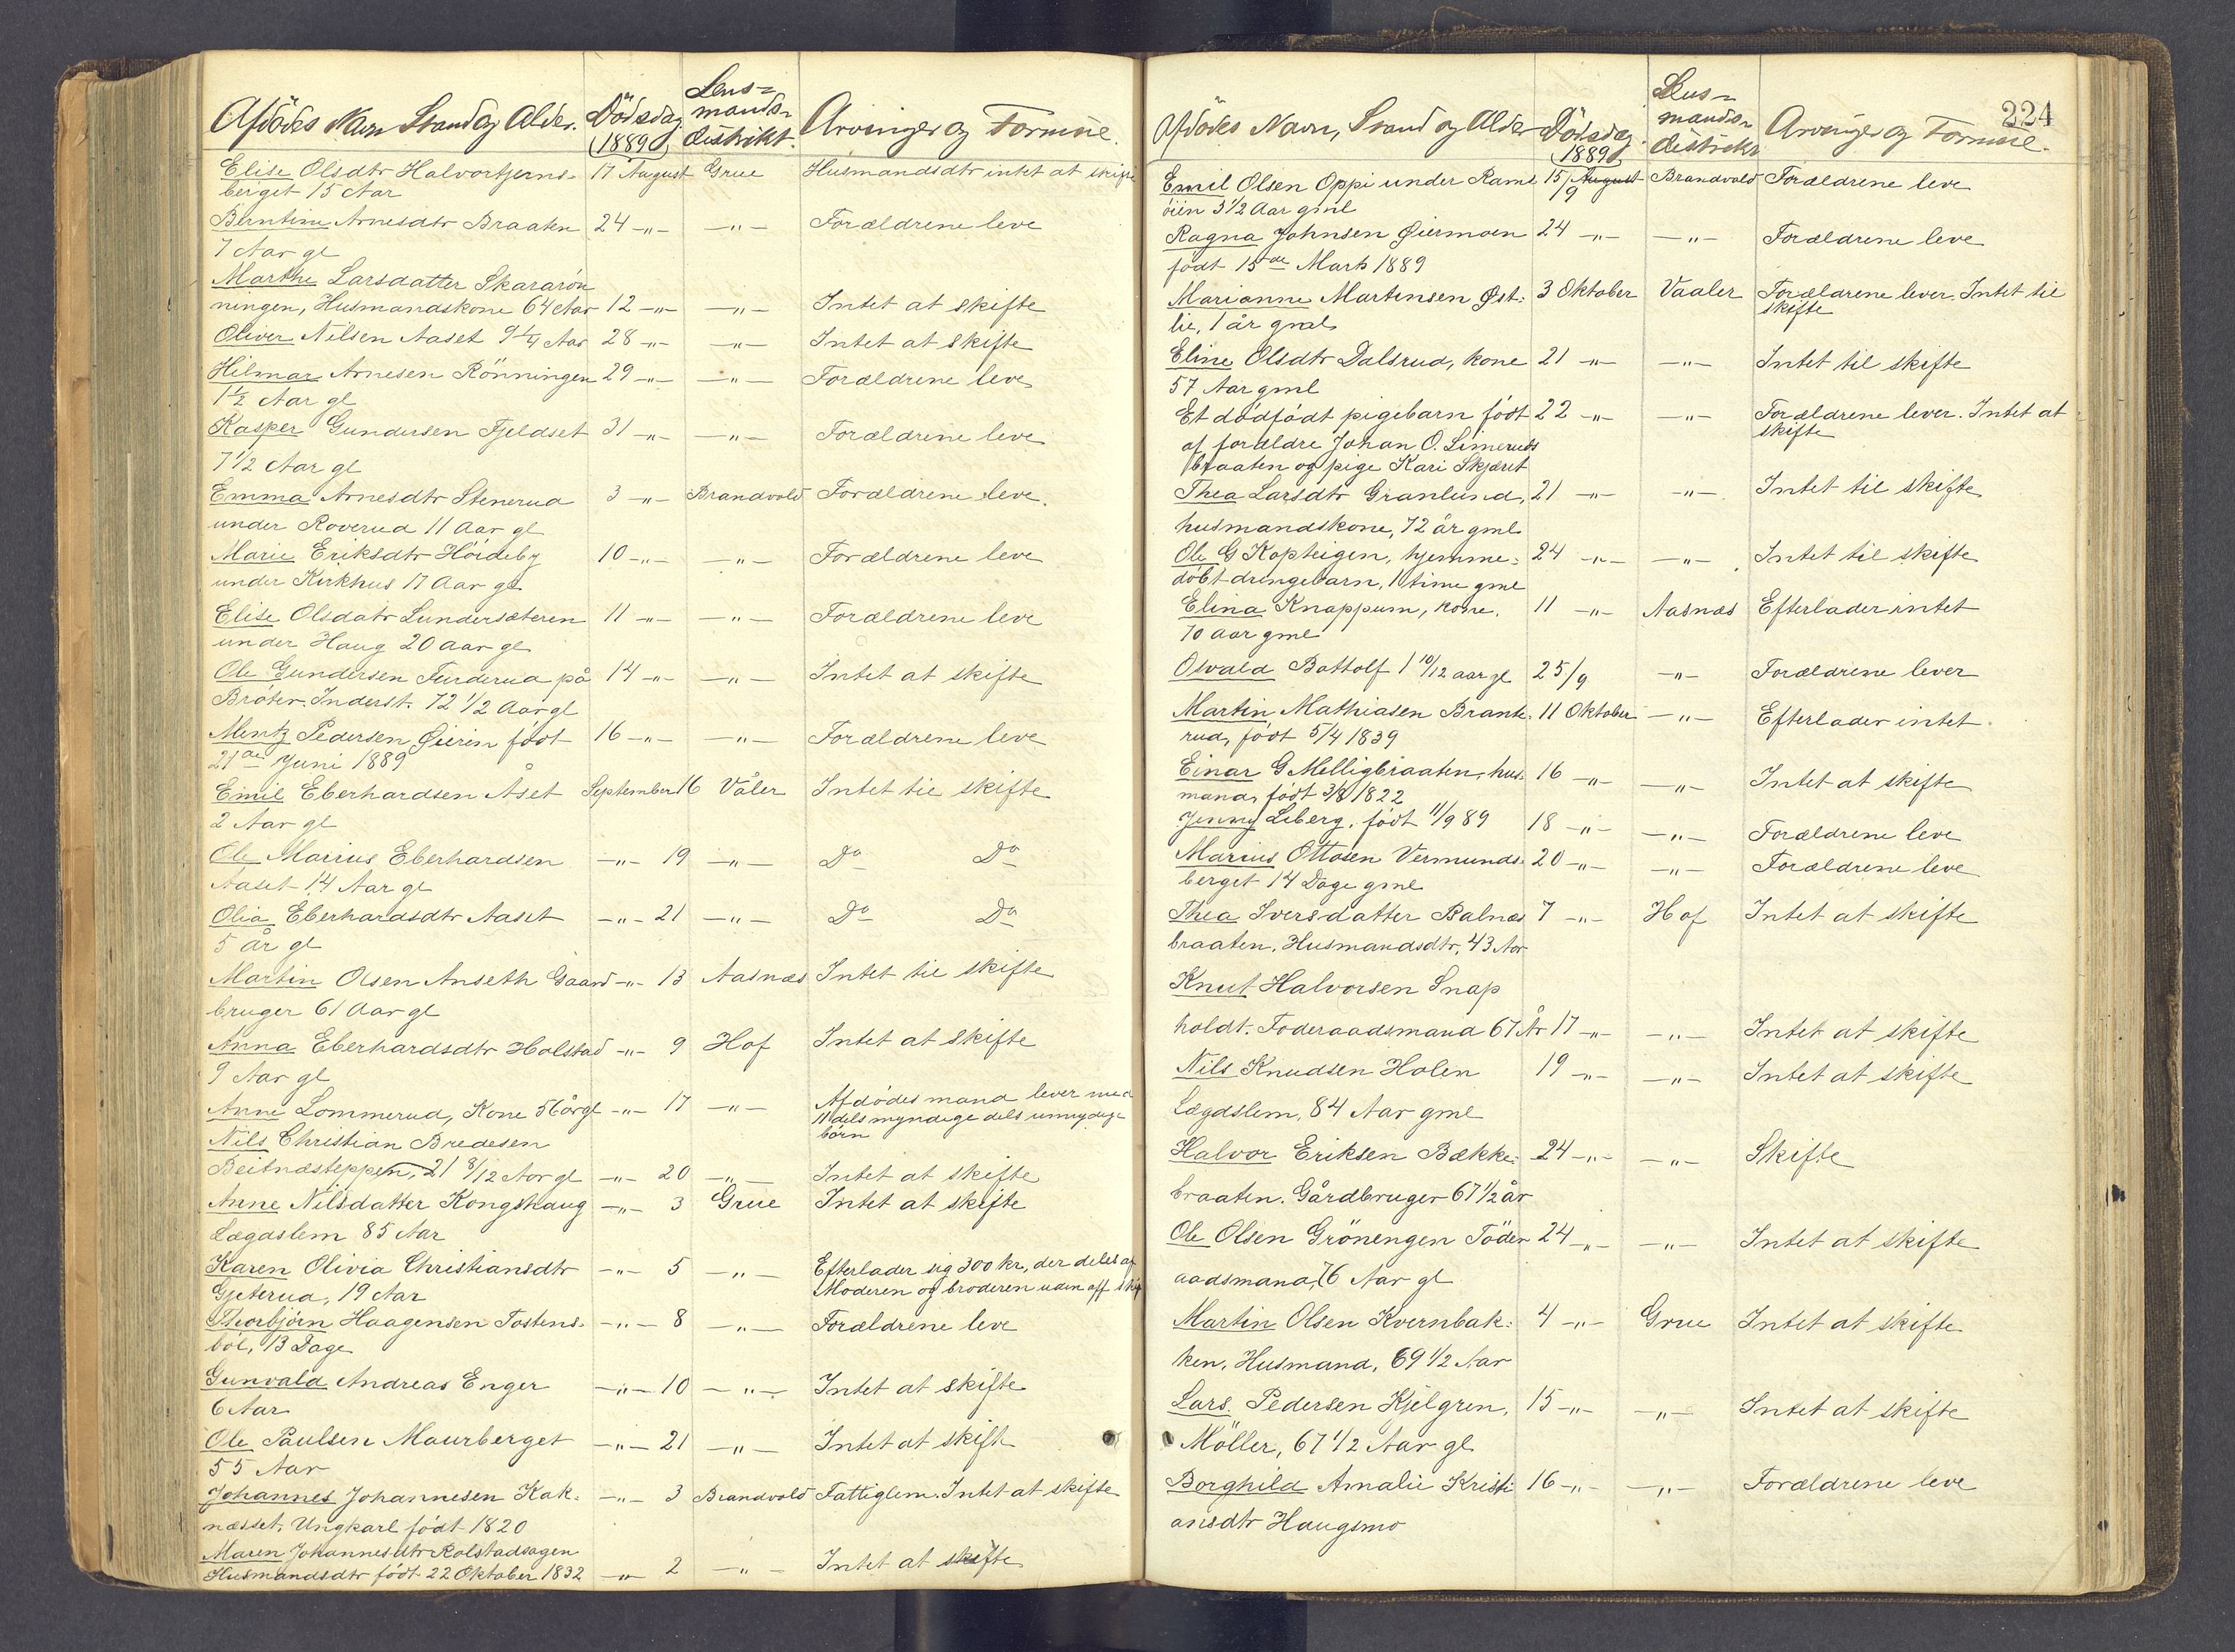 Afdödes Navn Stand og Alder. Dödsdag (1889) Lens=mands-distrikt. Arvinger og Formue.
Elise Olsdtr Halvortjerns- 17 August Grue Husmandsdtr intet at skifte
berget 15 Aar
Berntine Arnesdtr Braaten 24 -"- -"- Forældrene leve
7 Aar gl
Marthe Larsdatter Skararön
ningen, Husmandskone 64 Aar 12 -"- -"- Intet at skifte
Oliver Nilsen Aaset 9 1/4 Aar 28 -"- -"- Intet at skifte
Hilmar Arnesen Rönningen 29 -"- -"- Forældrene leve
1 1/2 Aar gl
Kasper Gundersen Fjeldset 31 -"- -"- Forældrene leve
7 1/2 Aar gl
Emma Arnesdtr Stenerud 3 -"- Brandvold Forældrene leve.
under Roverud 11 Aar gl
Marie Eriksdtr Höideby 10 -"- -"- Forældrene leve
under Kirkhus 17 Aar gl
Elise Olsdatr Lundersæteren 11 -"- -"- Forældrene leve
under Haug 20 aar gl
Ole Gundersen Furderud på 14 -"- -"- Intet at skifte
Bröter. Inderst. 72 1/2 Aar gl
Mentz Pedersen Öieren födt 16 -"- -"- Forældrene leve
21de Juni 1889
Emil Eberhardsen Åset September 16 Våler Intet til skifte
2 Aar gl
Ole Marius Eberhardsen -"- 19 -"- Do Do
Aaset 14 Aar gl
Olia Eberhardsdtr Aaset -"- 21 -"- Do Do
5 år gl
Martin Olsen Anseth Gaard -"- 13 Aasnæs Intet til skifte
bruger 61 Aar gl
Anna Eberhardsdtr Holstad -"- 9 Hof Intet at skifte
9 Aar gl
Anne Lommerud, Kone 56 år gl -"- 17 -"- Afdödes mand lever med
11 dels myndige dels umyndige
börn
Nils Christian Bredesen
Beitnæsteppen, 21 8/12 Aar gl -"- 20 -"- Intet at skifte
Anne Nilsdatter Kongshaug -"- 3 Grue Intet at skifte
Lægdslem 85 Aar
Karen Olivia Christiansdtr -"- 5 -"- Efterlader sig 300 kr, der deles af
Gjeterud, 19 Aar Moderen og broderen uden off skif
Thorbjörn Haagensen Tostens- -"- 8 -"- Forældrene leve
böl, 13 Dage
Gunvald Andreas Enger -"- 10 -"- Intet at skifte
6 Aar
Ole Paulsen Maurberget -"- 21 -"- Intet at skifte
55 Aar
Johannes Johannesen Kak- -"- 3 Brandvold Fattiglem. Intet at skifte
næsset, Ungkarl födt 1820
Maren Johannesdtr Rolstadsagen
Husmandsdtr födt 22 Oktober 1832 -"- 2 -"- Intet at skifte
224
Afdödes Navn, Stand og Alder Dödsdag. 1889 Lens-mands-distrikt Arvinger og Formue.
Emil Olsen Oppi under Rams 15/9 August Brandvold Forældrene leve
öien 3 1/2 Aar gml
Ragna Johnsen Øiermoen 24 -"- -"- Forældrene leve
født 15de Marts 1889
Marianne Martinsen Øst- 3 Oktober Vaaler Forældrene lever. Intet til
lie, 1 år gml skifte
Eline Olsdtr Dalsrud, kone 21 -"- -"- Intet til skifte
57 Aar gml
Et dödfödt pigebarn födt 22 -"- -"- Forældrene lever. Intet at
af forældre Johan O. Limeruds skifte
braaten og pige Kari Skjæret
Thea Larsdtr Granlund, 21 -"- -"- Intet til skifte
husmandskone, 72 år gml
Ole G Kopteigen, hjemme- 24 -"- -"- Intet til skifte
döbt drengebarn, 1 time gml
Elina Knappum, kone. 11 -"- Aasnæs Efterlader intet
70 aar gml
Osvald Bottolf 1 10/12 aar gl 25/9 -"- Forældrene lever
Martin Mathiasen Brante- 11 Oktober -"- Efterlader intet
rud, født 5/4 1839
Einar G Melligbraaten, hus- 16 -"- -"- Intet at skifte
mand, født 3/8 1822
Jenny Liberg, født 11/9 89 18 -"- -"- Forældrene leve
Marius Ottosen Vermunds- 20 -"- -"- Forældrene leve
berget 14 Dage gml
Thea Iversdatter Balnes 7 -"- Hof Intet at skifte
braaten, Husmandsdtr, 43 Aar
Knut Halvorsen Snap
holdt. Foderaadsmand 67 År 17 -"- -"- Intet at skifte
Nils Knudsen Holen 19 -"- -"- Intet at skifte
Lægdslem, 84 Aar gml
Halvor Eriksen Bække- 24 -"- -"- Skifte
braaten. Gårdbruger 67 1/2 år
Ole Olsen Grönengen Föder 24 -"- -"- Intet at skifte
aadsmand, 76 Aar gl
Martin Olsen Kvernbak- 4 -"- Grue Intet at skifte
ken, Husmand, 69 1/2 Aar
Lars Pedersen Kjelgren, 15 -"- -"- Intet at skifte
Möller, 67 1/2 Aar gl
Borghild Amalie Kristi- 16 -"- -"- Forældrene leve
ansdtr Haugsmo